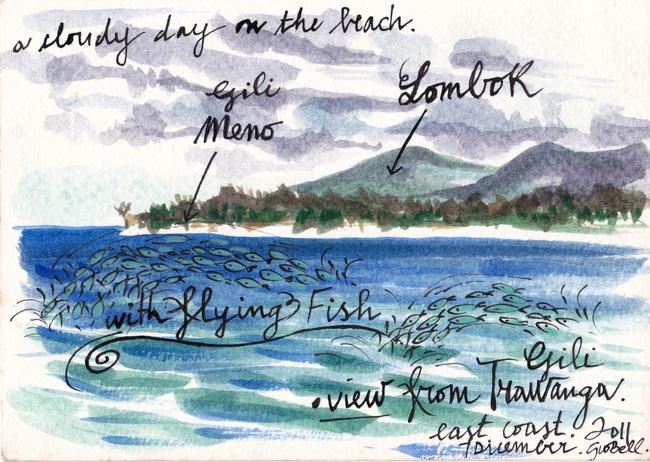 a cloudy day on the beach.
Gili
Meno
Lombok
with flying Fish
Gili
view from Trawanga.
east coast. 2011
Dicember.